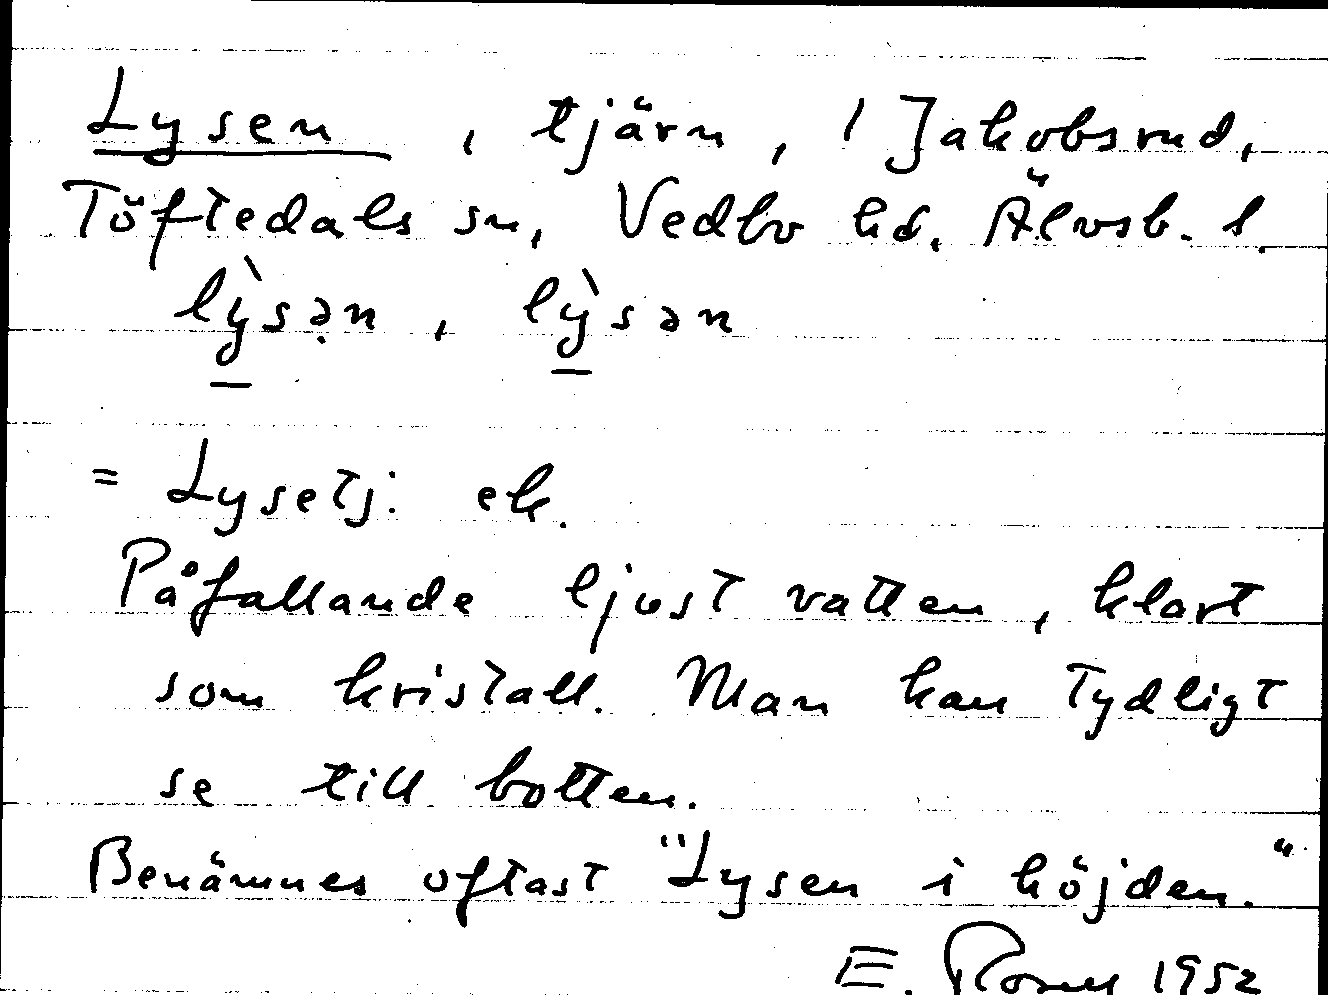 Lysen, tjärn, 1 Jakobsrud,
Töftedals sn, Vedbo hd. Älvsb. l.
lỳsən, lỳsən
= Lysetj: ek.
Påfallande ljust vatten, klart
som kristall. Man kan tydligt
se till botten.
Benämnes oftast "Lysen i höjden."
E. 1952